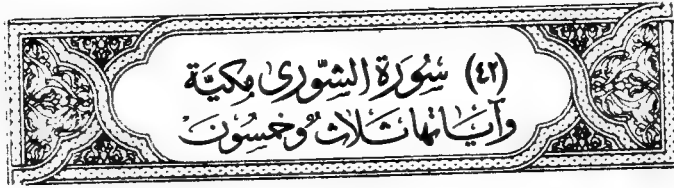 (٤٢) سُورَة الشّورى مكيّة
وآيَاتها ثلاث وخمسُون